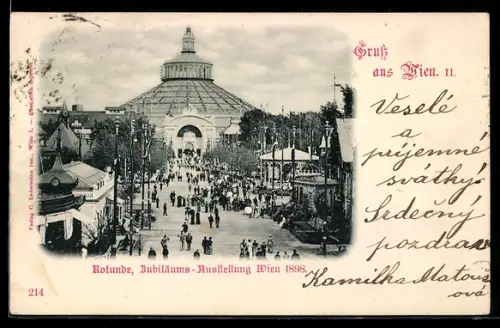 Gruß
aus Wien. II.
Veselé
a
příjemné
svátky!
Srdečný
pozdrav
Kamilka Matouš
ová
Rotunde, Jubiläums-Ausstellung Wien 1898.
214
Verlag C. Ledermann jun., Wien I.